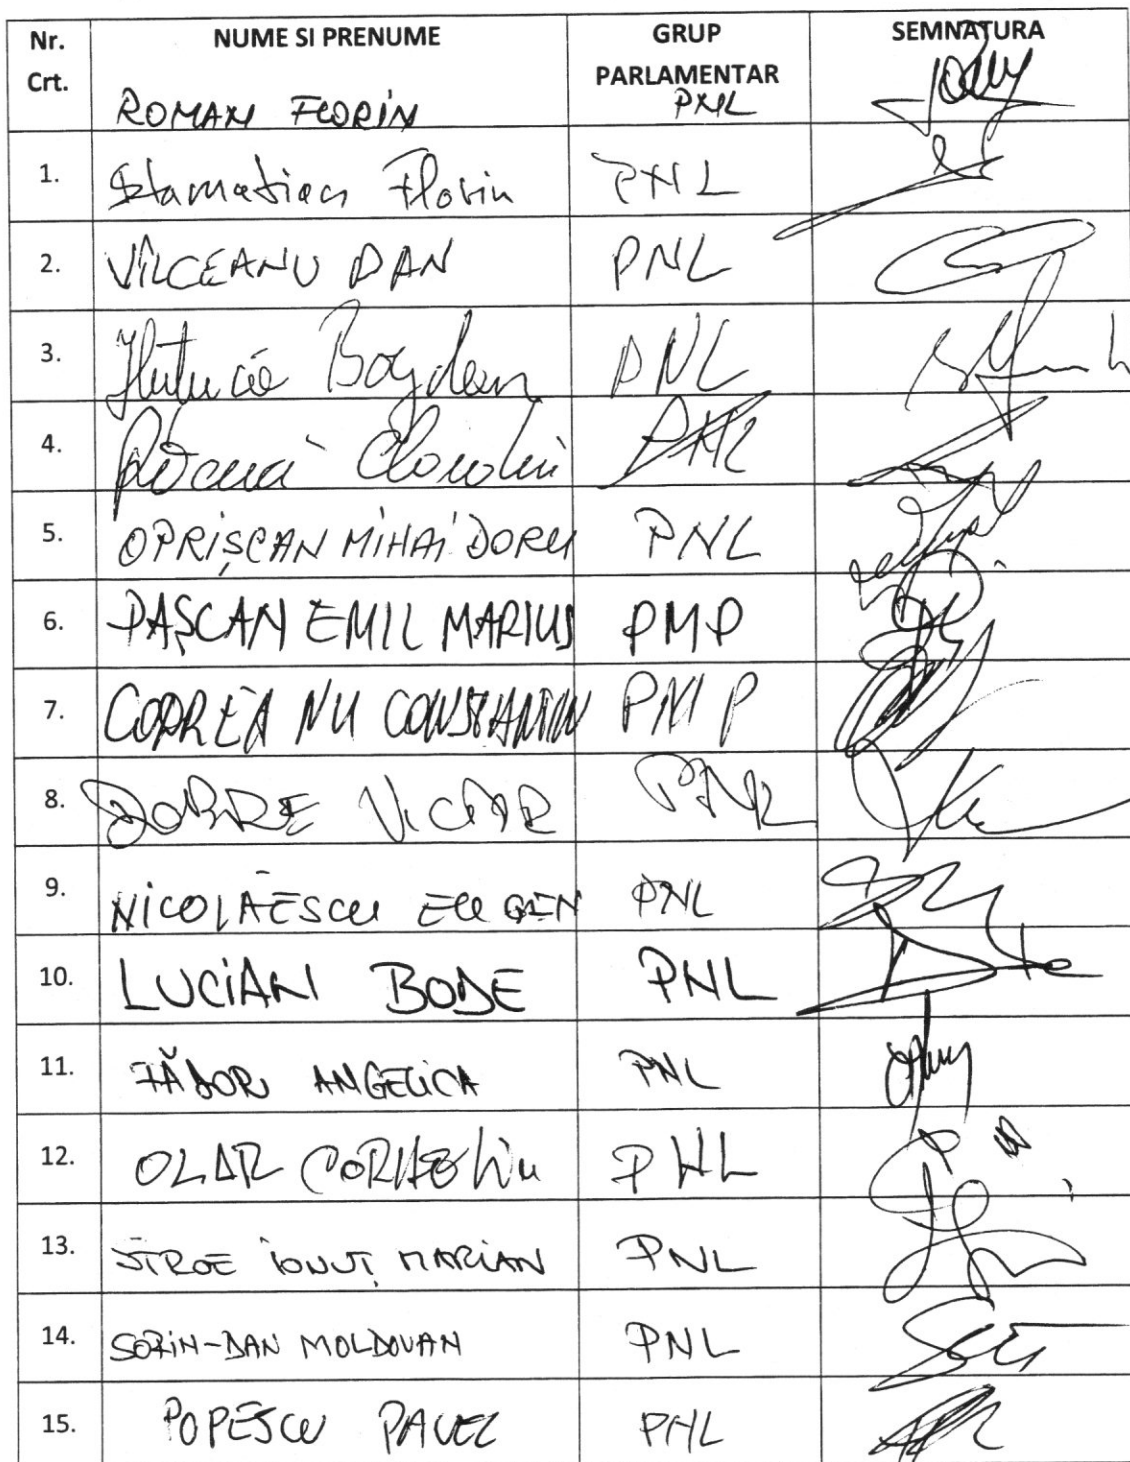 Nr. Crt. NUME SI PRENUME GRUP PARLAMENTAR SEMNATURA
ROMAN FLORIN PNL
1. Stamatian Florin PNL
2. VÎLCEANU DAN PNL
3. Huțucă Bogdan PNL
4. PNL
5. OPRIȘCAN MIHAI DORU PNL
6. PAȘCAN EMIL MARIUS PMP
7. CODREANU CONSTANTIN PMP
8. DOBRE VICTOR PNL
9. NICOLĂESCU EUGEN PNL
10. LUCIAN BODE PNL
11. FĂDOR ANGELICA PNL
12. OLAR CORNELIU PNL
13. STROE IONUȚ MARIAN PNL
14. SORIN-DAN MOLDOVAN PNL
15. POPESCU PAVEL PNL